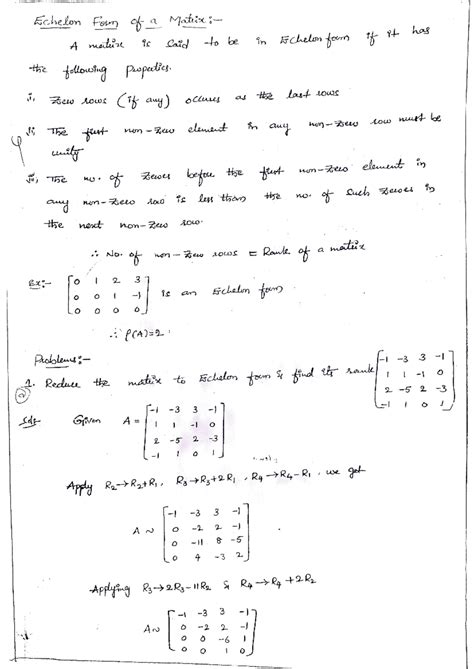 Echelon Form of a Matrix:-
A matrix is said to be in Echelon form if it has
the following properties.
i, Zero rows (if any) occurs as the last rows
ii, The first non-zero element in any non-zero row must be
unity
iii, The no. of zeroes before the first non-zero element in
any non-zero row is less than the no. of such zeroes in
the next non-zero row.
∴ No. of non-zero rows = Rank of a matrix
Ex:- [0 1 2 3
0 0 1 -1
0 0 0 0] is an Echelon form
∴ ρ(A)=2.
Problems:-
1. Reduce the matrix to Echelon form & find its rank [-1 -3 3 -1
1 1 -1 0
2 -5 2 -3
-1 1 0 1]
Sol:- Given A = [-1 -3 3 -1
1 1 -1 0
2 -5 2 -3
-1 1 0 1]
Apply R2→R2+R1, R3→R3+2R1, R4→R4-R1, we get
A ~ [-1 -3 3 -1
0 -2 2 -1
0 -11 8 -5
0 4 -3 2]
Applying R3→2R3-11R2 & R4→R4+2R2
A ~ [-1 -3 3 -1
0 -2 2 -1
0 0 -6 1
0 0 1 0]